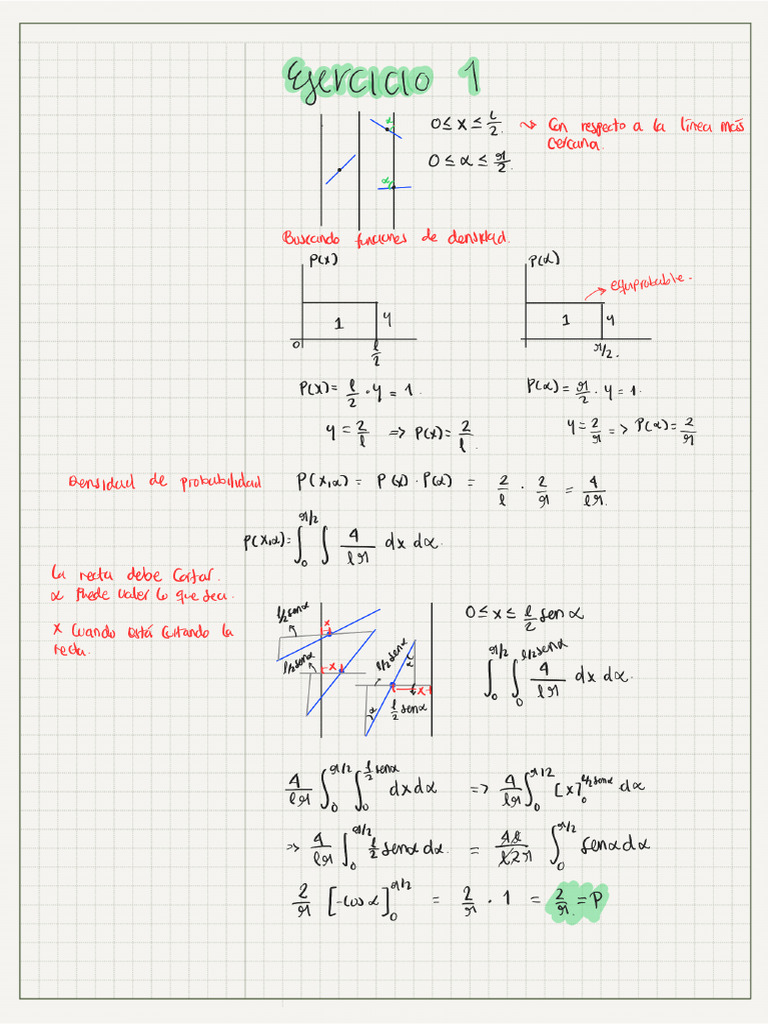 Ejercicio 1
0 ≤ x ≤ l/2 ⇝ Con respecto a la línea más cercana.
0 ≤ α ≤ π/2.
α
α
Buscando funciones de densidad.
P(x)
P(α)
equiprobable.
1 y
1 y
0 l/2
π/2.
P(x) = l/2 · y = 1.
P(α) = π/2 · y = 1.
y = 2/l => P(x) = 2/l.
y = 2/π => P(α) = 2/π
Densidad de probabilidad P(x,α) = P(x) · P(α) = 2/l · 2/π = 4/lπ.
P(x,α) = ∫₀^{π/2} ∫ 4/lπ dx dα.
La recta debe cortar.
α Puede valer lo que sea.
x Cuando está cortando la
recta.
l/2 senα
x
l/2 senα
x
l/2 senα
α
x
α
l/2 senα
0 ≤ x ≤ l/2 sen α
∫₀^{π/2} ∫₀^{l/2 senα} 4/lπ dx dα.
4/lπ ∫₀^{π/2} ∫₀^{l/2 senα} dx dα => 4/lπ ∫₀^{π/2} [x]₀^{l/2 senα} dα
=> 4/lπ ∫₀^{π/2} l/2 senα dα. = 4l/l2π ∫₀^{π/2} senα dα
2/π [-cos α]₀^{π/2} = 2/π · 1 = 2/π. = P